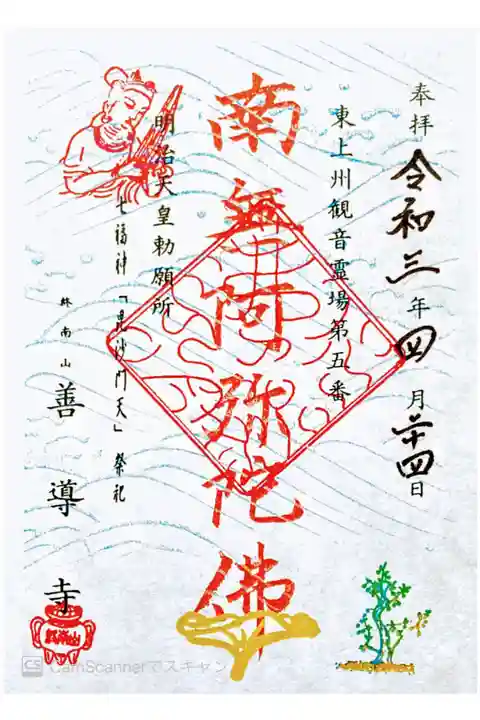 奉拝
令和三年四月廿四日
東上州観音霊場第五番
南無阿弥陀佛
明治天皇勅願所
七福神「毘沙門天」祭礼
終南山 善導寺
終南山
CS CamScannerでスキャン